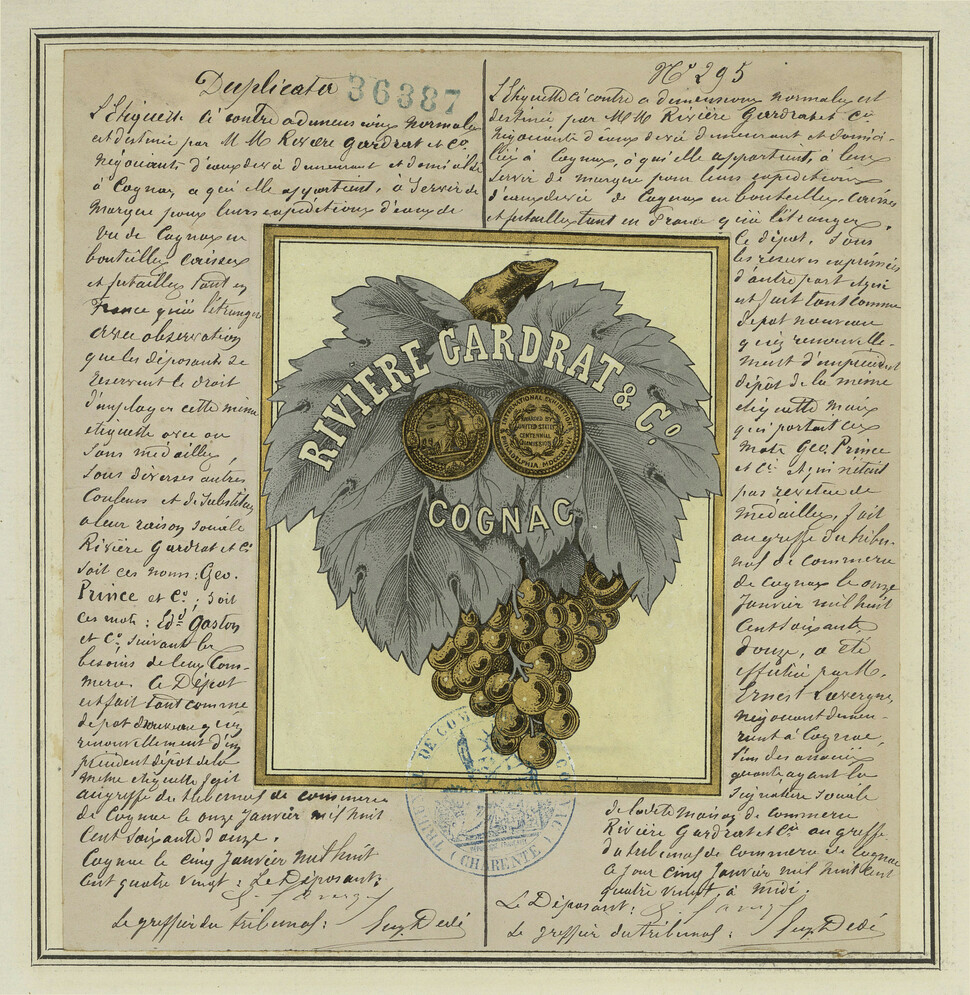 Duplicata 36387
L'étiquette ci contre a dimensions normales
est destinée par MM Rivière Gardrat et Co
négociants d'eaux de vie demeurant et domiciliés
à Cognac, a qui elle appartient, à servir de
marque pour leurs expéditions d'eaux de
vie de Cognac en
bouteilles, caisses
et futailles tant en
France qu'à l'étranger
avec observation
que les déposants se
réservent le droit
d'employer cette même
étiquette avec ou
sans médailles,
sous diverses autres
couleurs et de substituer
a leur raison sociale
Rivière Gardrat et Cie
soit ces noms : Geo.
Prince et Co ; soit
ces mots : Edd Gaston
et Co, suivant les
besoins de leur Com-
merce. Ce Dépôt
est fait tant comme
dépôt nouveau qu'en
renouvellement d'un
précédent dépôt de la
même étiquette fait
au greffe du tribunal de commerce
de Cognac le onze Janvier mil huit
cent soixante douze.
Cognac le cinq Janvier mil huit
cent quatre vingt : Le Déposant :
Le greffier du tribunal : Eug. Dedé
No 295
L'étiquette ci contre a dimensions normales est
destinée par MM Rivière Gardrat et Co
négociants d'eaux de vie demeurant et domici-
liés à Cognac, à qui elle appartient, à leur
servir de marque pour leurs expéditions
d'eaux de vie de Cognac en bouteilles, caisses
et futailles tant en France qu'à l'étranger.
Ce dépôt, sous
les réserves exprimées
d'autre part et qui
est fait tant comme
dépôt nouveau
qu'en renouvelle-
ment d'un précédent
dépôt de la même
étiquette mais
qui portait les
mots Geo, Prince
et Co et qui n'était
pas revêtue de
médailles, fait
au greffe du tribu-
nal de commerce
de Cognac le onze
Janvier mil huit
cent soixante
douze, a été
effectué par M.
Ernest Lavergne,
négociant demeu-
rant à Cognac,
l'un des associés
gérants ayant la
signature sociale
de la dite maison de commerce
Rivière Gardrat et Cie au greffe
du tribunal de commerce de Cognac
le jour cinq Janvier mil huit cent
quatre vingt à midi.
Le Déposant :
Le greffier du tribunal : Eug. Dedé
RIVIERE GARDRAT & Co.
INTERNATIONAL EXHIBITION
PHILADELPHIA MDCCCLXXVI
AWARDED BY
UNITED STATES
CENTENNIAL
COMMISSION
COGNAC
TRIBUNAL DE COMMERCE COGNAC
(CHARENTE)